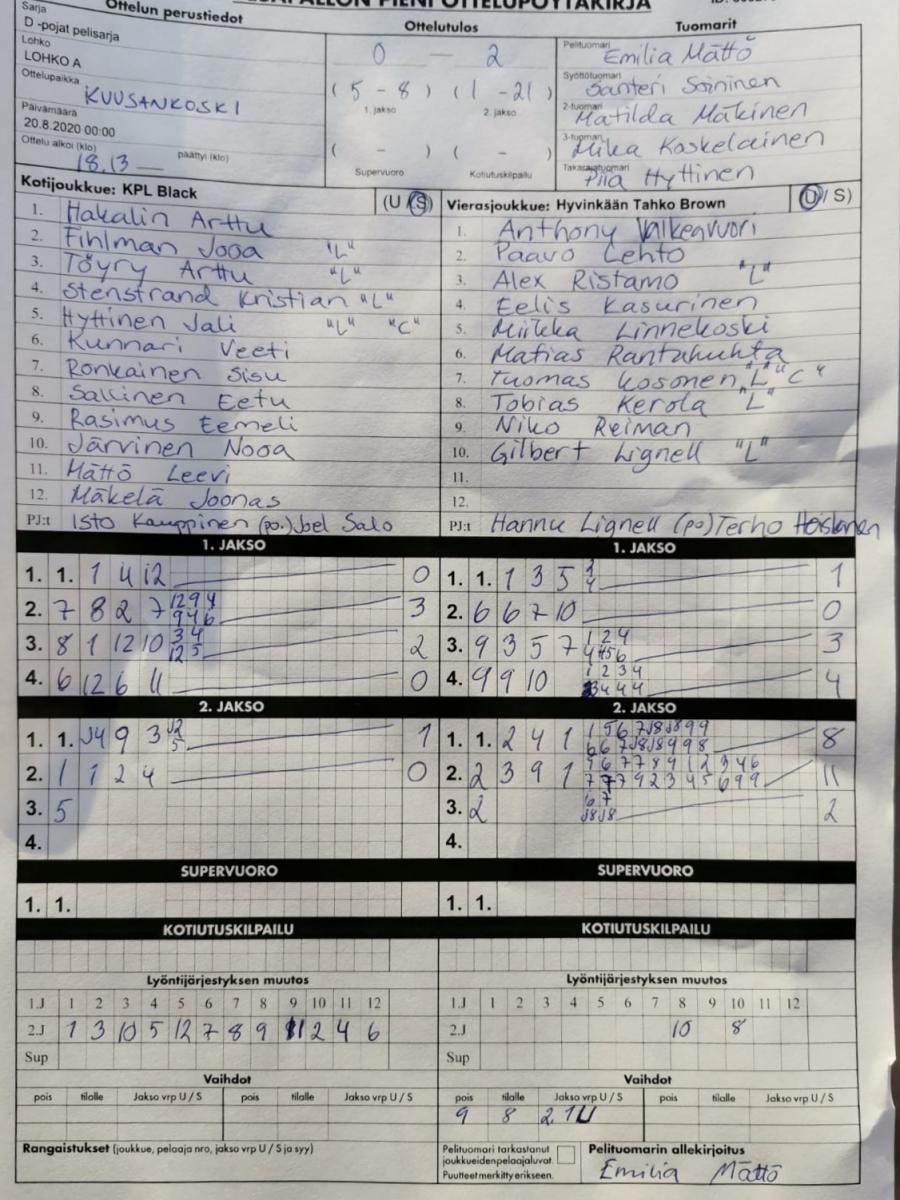 PIENI OTTELUPÖYTÄKIRJA
Ottelun perustiedot
Sarja
D -pojat pelisarja
Lohko
LOHKO A
Ottelupaikka
KUUSANKOSKI
Päivämäärä
20.8.2020 00:00
Ottelu alkoi (klo) 18.13 päättyi (klo)
Ottelutulos
0 — 2
( 5 - 8 ) ( 1 - 21 )
1. jakso 2. jakso
( - ) ( - )
Supervuoro Kotiutuskilpailu
Tuomarit
Pelituomari Emilia Mättö
Syöttötuomari Santeri Soininen
2-tuomari Matilda Mäkinen
3-tuomari Mika Koskelainen
Takarajatuomari Piia Hyttinen
Kotijoukkue: KPL Black (U / S)
1. Hakalin Arttu
2. Fihlman Jooa "L"
3. Töyry Arttu "L"
4. Stenstrand Kristian "L"
5. Hyttinen Jali "L" "C"
6. Kunnari Veeti
7. Ronkainen Sisu
8. Sallinen Eetu
9. Rasimus Eemeli
10. Järvinen Nooa
11. Mättö Leevi
12. Mäkelä Joonas
PJ:t Isto Kauppinen (po.) Joel Salo
Vierasjoukkue: Hyvinkään Tahko Brown (U / S)
1. Anthony Valkeavuori
2. Paavo Lehto
3. Alex Ristamo "L"
4. Eelis Kasurinen
5. Miikka Linnekoski
6. Matias Rantahuhta
7. Tuomas Kosonen "L" "C"
8. Tobias Kerola "L"
9. Niko Reiman
10. Gilbert Lignell "L"
11.
12.
PJ:t Hannu Lignell (po) Terho
1. JAKSO
1. 1. 1 4 12 0
2. 7 8 2 7 12 9 4 9 4 6 3
3. 8 1 12 10 3 4 12 5 2
4. 6 12 6 11 0
2. JAKSO
1. 1. 9 3 1
2. 1 1 2 4 0
3. 5
4.
SUPERVUORO
1. 1.
KOTIUTUSKILPAILU
1. JAKSO
1. 1. 1 3 5 1
2. 6 6 7 10 0
3. 9 3 5 7 1 2 4 3
4. 9 9 10 1 2 3 4 4
2. JAKSO
1. 1. 2 4 1 8
2. 2 3 9 1 11
3. 2 6 7 2
4.
SUPERVUORO
1. 1.
KOTIUTUSKILPAILU
Lyöntijärjestyksen muutos
1.J 1 2 3 4 5 6 7 8 9 10 11 12
2.J 1 3 10 5 12 7 8 9 11 2 4 6
Sup
Vaihdot
pois tilalle Jakso vrp U / S pois tilalle Jakso vrp U / S
Lyöntijärjestyksen muutos
1.J 1 2 3 4 5 6 7 8 9 10 11 12
2.J 10 8
Sup
Vaihdot
pois tilalle Jakso vrp U / S pois tilalle Jakso vrp U / S
9 8 2.1U
Rangaistukset (joukkue, pelaaja nro, jakso vrp U / S ja syy)
Pelituomari tarkastanut
joukkueiden pelaajaluvat.
Puutteet merkitty erikseen.
Pelituomarin allekirjoitus
Emilia Mättö